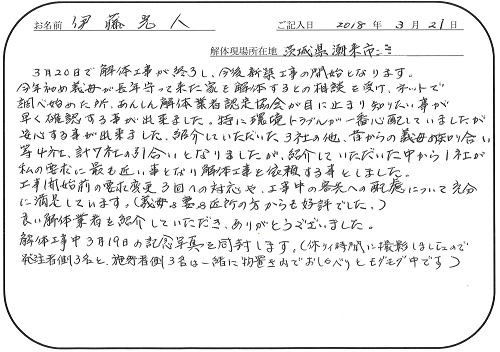 お名前 伊藤克人 ご記入日 2018年3月21日
解体現場所在地 茨城県潮来市
3月20日で解体工事が終了し、今後新築工事の開始となります。
今年初め義母が長年守って来た家を解体するとの相談を受け、ネットで
調べ始めた所、あんしん解体業者認定協会が目に止まり知りたい事が
早く確認する事が出来ました。特に環境トラブルが一番心配していましたが
安心する事が出来ました。紹介していただいた3社の他、昔からの義母の知り合い
等4社、計7社の引合いとなりましたが、紹介していただいた中から1社が
私の要求に最も近い事となり解体工事を依頼する事としました。
工事開始前の要求変更3回への対応や、工事中の客先への配慮について充分
に満足しています。(義母の妻の近所の方からも好評でした。)
良い解体業者を紹介していただき、ありがとうございました。
解体工事中3月19日の記念写真を同封します。(休ケイ時間に撮影しましたので
発注者側3名と、施行者側3名は一緒に物置き内でおしゃべりとモグモグ中です)